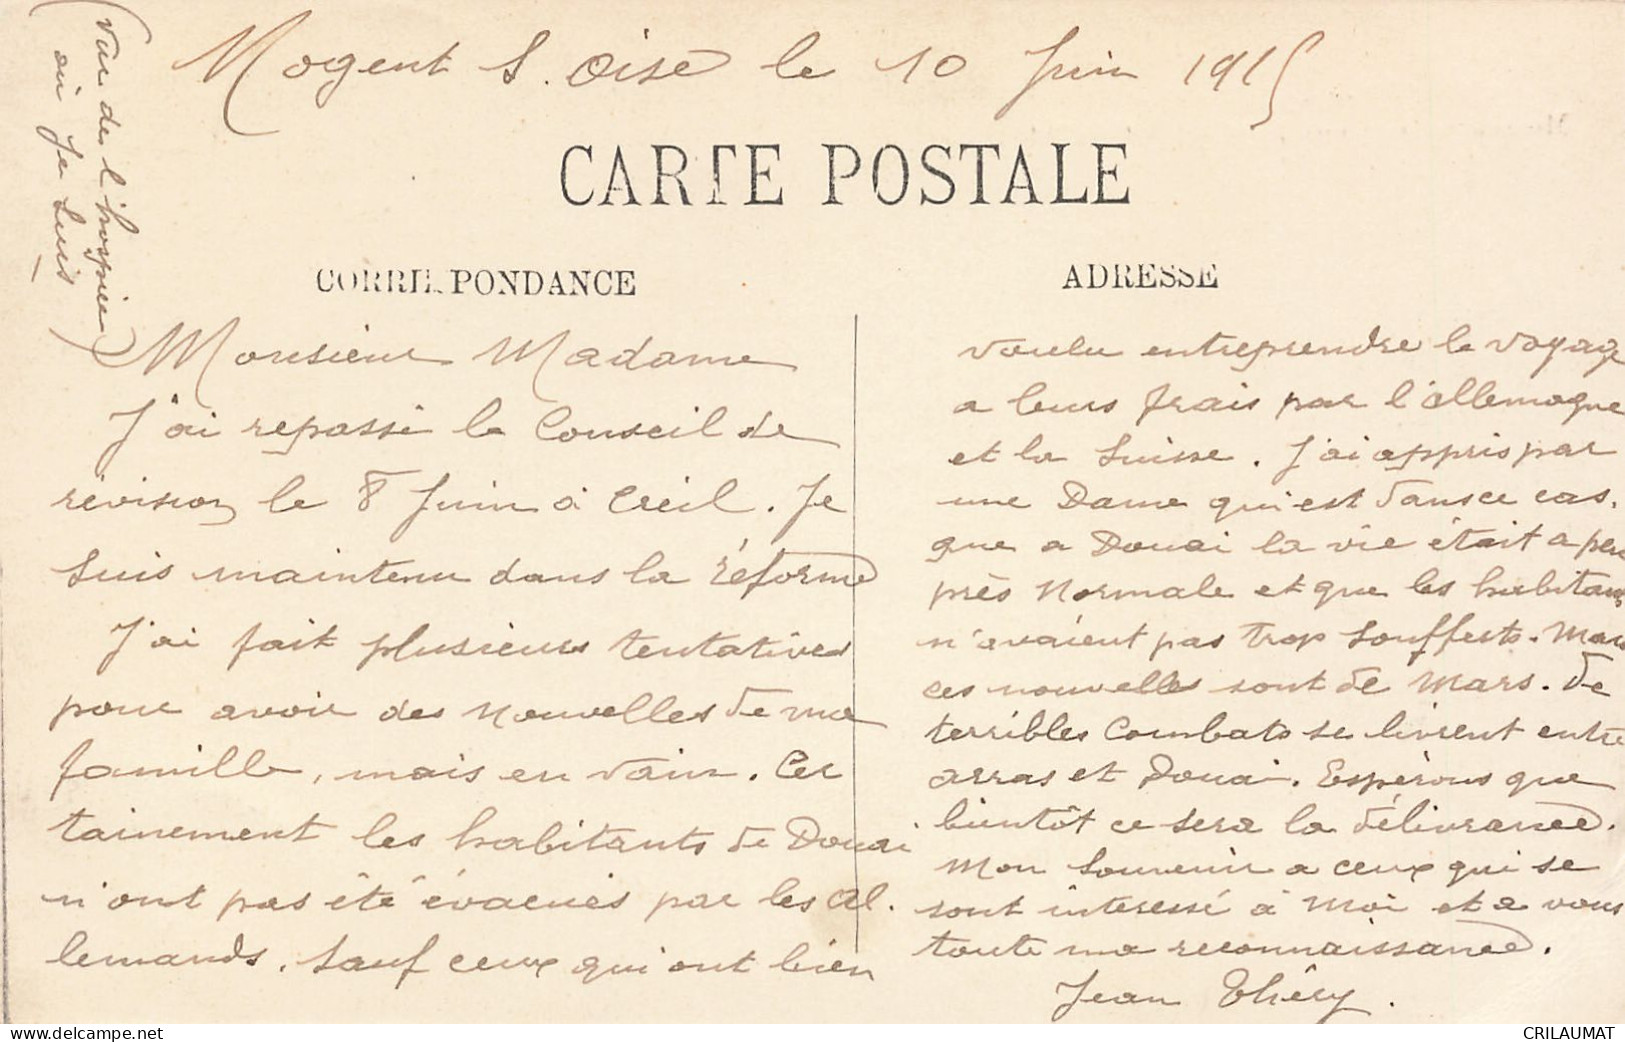 Nogent s. Oise le 10 Juin 1915
(Vue de l'hospice
où je suis)
CARTE POSTALE
CORRESPONDANCE
ADRESSE
Monsieur Madame
J'ai repassé le Conseil de
révision le 8 Juin à Creil. Je
suis maintenu dans la réforme
J'ai fait plusieurs tentatives
pour avoir des nouvelles de ma
famille, mais en vain. Cer
tainement les habitants de Douai
n'ont pas été évacués par les Al.
lemands. Sauf ceux qui ont bien
voulu entreprendre le voyage
a leurs frais par l'allemagne
et la Suisse. J'ai appris par
une Dame qui est dans ce cas.
que a Douai la vie était a peu
près normale et que les habitants
n'avaient pas trop soufferts. Mais
ces nouvelles sont de Mars. De
terribles combats se livrent entre
arras et Douai. Espérons que
bientôt ce sera la délivrance.
Mon souvenir a ceux qui se
sont interessé à moi et a vous
toute ma reconnaissance.
Jean Théry.
www.delcampe.net
CRILAUMAT